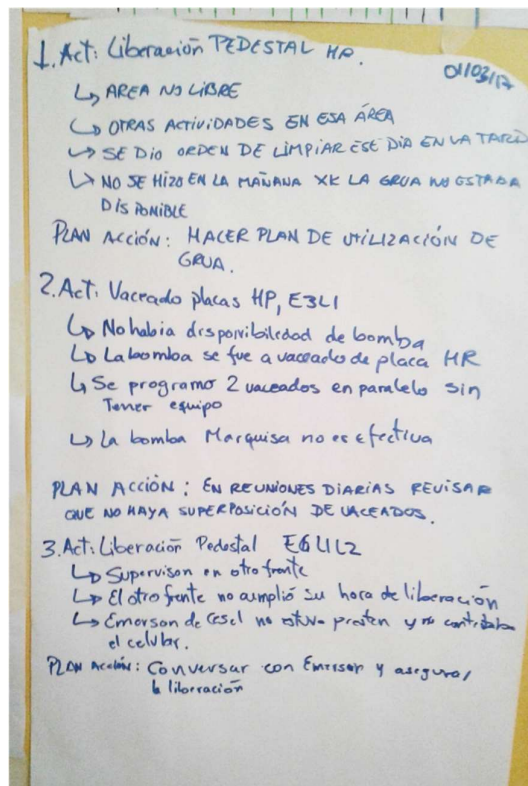 1. Act: Liberación PEDESTAL HR.
01/03/17
↳ AREA NO LIBRE
↳ OTRAS ACTIVIDADES EN ESA ÁREA
↳ SE DIO ORDEN DE LIMPIAR ESE DIA EN LA TARDE
↳ NO SE HIZO EN LA MAÑANA XK LA GRUA NO ESTABA
DISPONIBLE
PLAN ACCIÓN: HACER PLAN DE UTILIZACIÓN DE
GRUA.
2. Act: Vaceado placas HP, E3L1
↳ No habia disponibilidad de bomba
↳ La bomba se fue a vaceado de placa HR
↳ Se programo 2 vaceados en paralelo sin
Tener equipo
↳ La bomba Marquisa no es efectiva
PLAN ACCIÓN: EN REUNIONES DIARIAS REVISAR
QUE NO HAYA SUPERPOSICIÓN DE VACEADOS.
3. Act: Liberación Pedestal E6 L1L2
↳ Supervison en otro frente
↳ El otro frente no cumplió su hora de liberación
↳ Emerson de Cesel no estuvo presten y no contestaba
el celular.
PLAN Acción: Conversar con Emerson y asegurar
la liberación